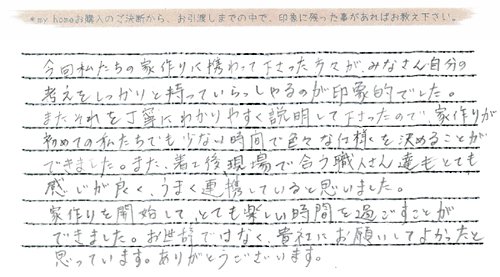 *my homeお購入のご決断から、お引渡しまでの中で、印象に残った事があればお教え下さい。
今回私たちの家作りに携わって下さった方々が、みなさん自分の
考えをしっかりと持っていらっしゃるのが印象的でした。
またそれを丁寧にわかりやすく説明して下さったので、家作りが
初めての私たちでも少ない時間で色々な仕様を決めることが
できました。また、着工後現場で合う職人さん達もとても
感じが良く、うまく連携していると思いました。
家作りを開始して、とても楽しい時間を過ごすことが
できました。お世辞ではなく、貴社にお願いしてよかったと
思っています。ありがとうございます。